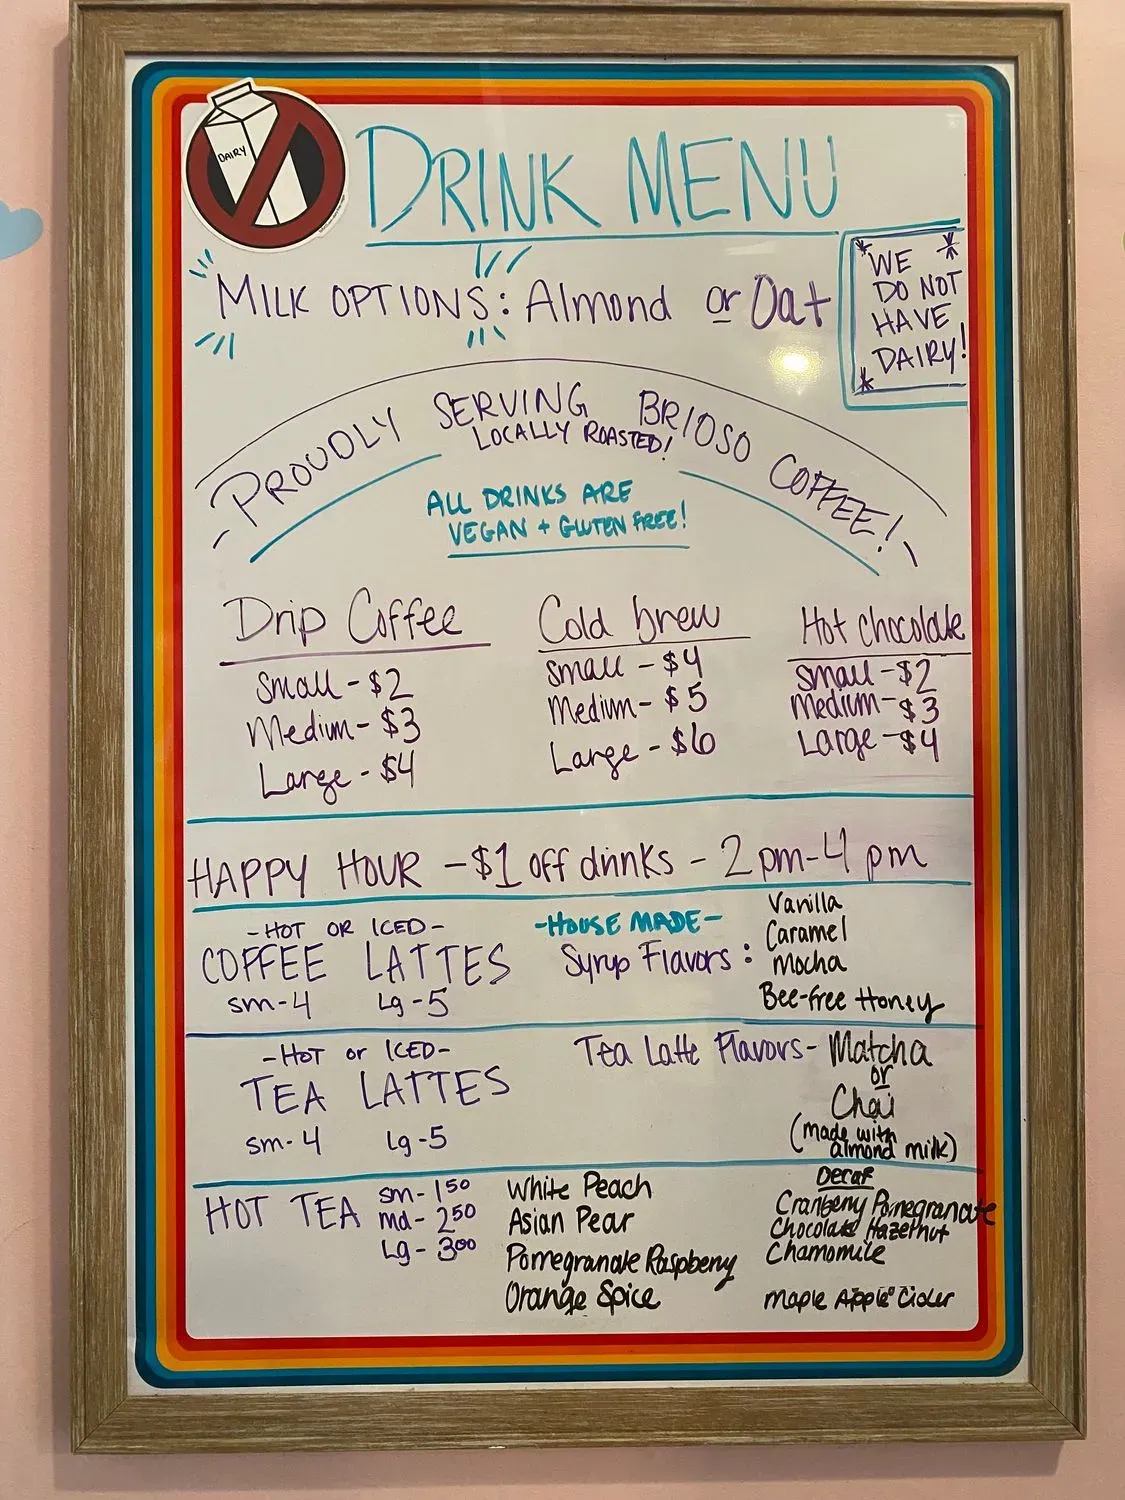 DAIRY
DRINK MENU
MILK OPTIONS: Almond or Oat
* WE *
DO NOT
HAVE
* DAIRY!
PROUDLY SERVING BRIOSO COFFEE!
LOCALLY ROASTED!
ALL DRINKS ARE
VEGAN + GLUTEN FREE!
Drip Coffee
Small - $2
Medium - $3
Large - $4
Cold brew
Small - $4
Medium - $5
Large - $6
Hot chocolate
Small - $2
Medium - $3
Large - $4
HAPPY HOUR - $1 off drinks - 2 pm-4 pm
- HOT OR ICED -
COFFEE LATTES
sm-4 Lg-5
- HOUSE MADE -
Syrup Flavors:
Vanilla
Caramel
Mocha
Bee-free Honey
- HOT or ICED -
TEA LATTES
sm-4 Lg-5
Tea Latte Flavors - Matcha
or
Chai
(made with
almond milk)
HOT TEA
sm- 1.50
md- 2.50
Lg - 3.00
White Peach
Asian Pear
Pomegranate Raspberry
Orange Spice
Decaf
Cranberry Pomegranate
Chocolate Hazelnut
Chamomile
Maple Apple Cider